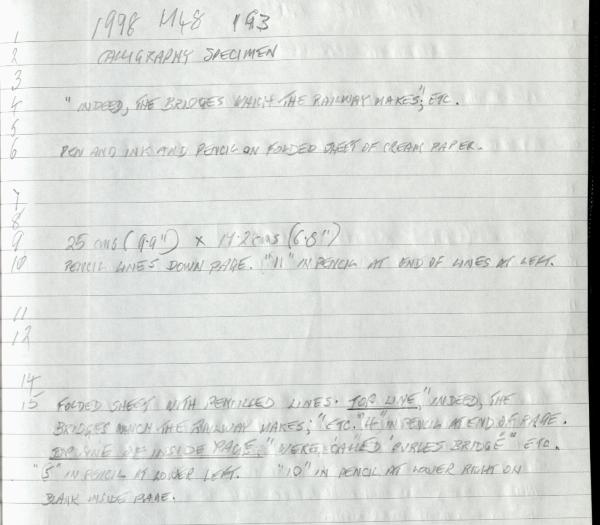 1998 M48 193
1
2 CALLIGRAPHY SPECIMEN
3
4 "INDEED, THE BRIDGES WHICH THE RAILWAY MAKES," ETC.
5
6 PEN AND INK AND PENCIL ON FOLDED SHEET OF CREAM PAPER.
7
8
9 25 cms (9.9") x 17.2 cms (6.8")
10 PENCIL LINES DOWN PAGE. "11" IN PENCIL AT END OF LINES AT LEFT.
11
12
14
15 FOLDED SHEET WITH PENCILLED LINES. TOP LINE, "INDEED, THE
BRIDGES WHICH THE RAILWAY MAKES," ETC. "4" IN PENCIL AT END OF PAGE.
TOP LINE OF INSIDE PAGE, "WERE CALLED 'PURLES BRIDGE'" ETC.
"5" IN PENCIL AT LOWER LEFT. "10" IN PENCIL AT LOWER RIGHT ON
BLANK INSIDE PAGE.